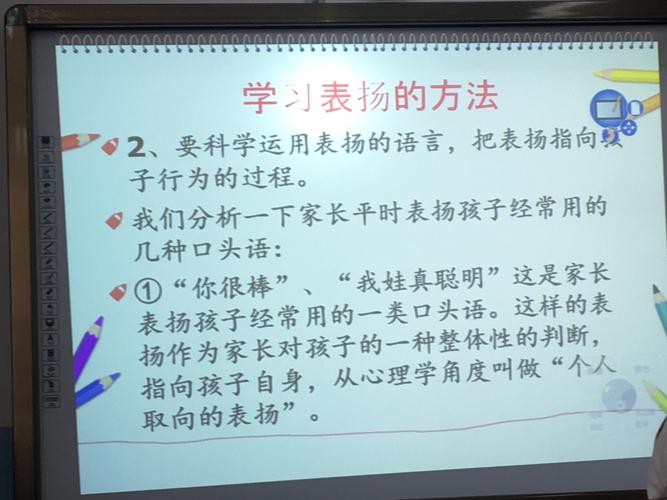 学习表扬的方法
2、要科学运用表扬的语言，把表扬指向孩
子行为的过程。
我们分析一下家长平时表扬孩子经常用的
几种口头语：
①“你很棒”、“我娃真聪明”这是家长
表扬孩子经常用的一类口头语。这样的表
扬作为家长对孩子的一种整体性的判断，
指向孩子自身，从心理学角度叫做“个人
取向的表扬”。